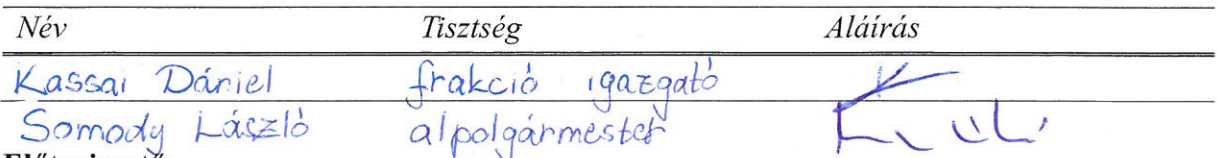 Név Tisztség Aláírás
Kassai Dániel frakció igazgató
Somody László alpolgármester